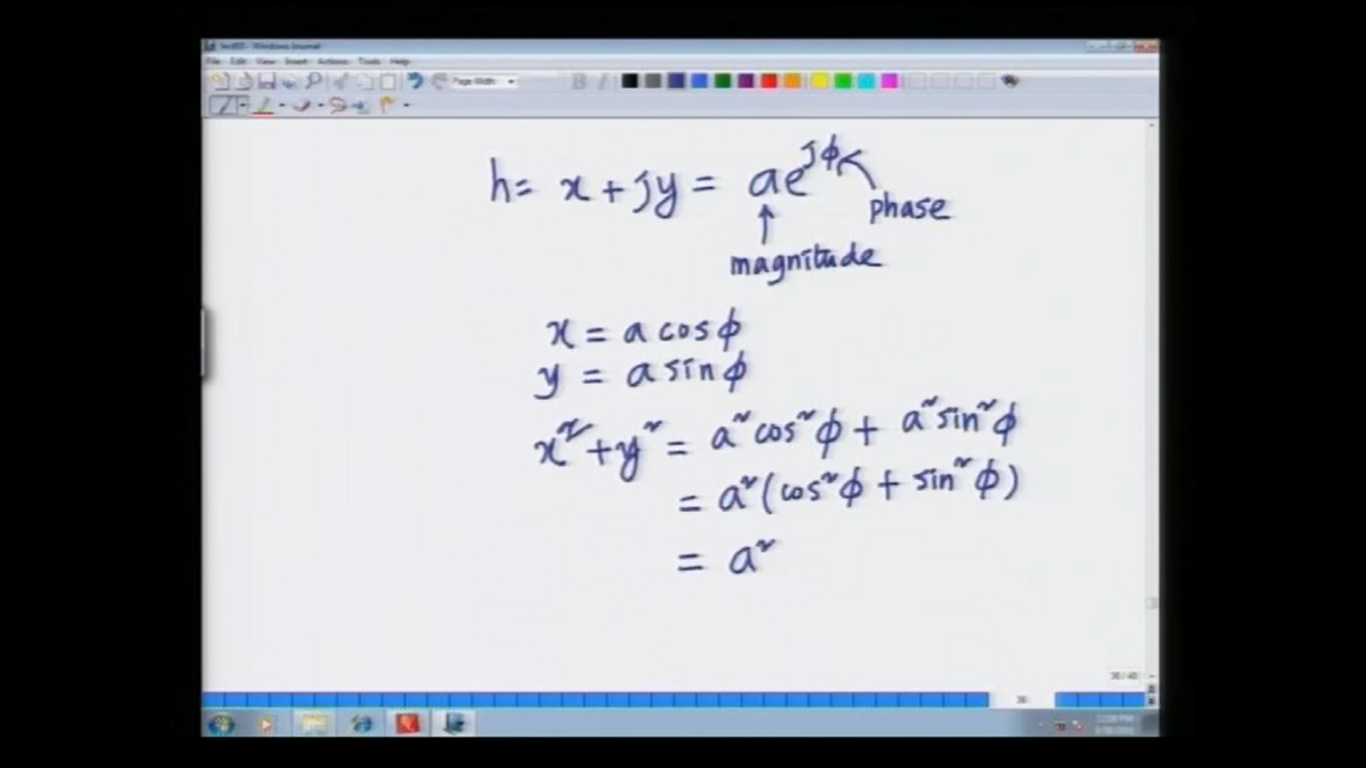 File Edit View Insert Actions Tools Help
Page Width
h = x + jy = ae^{jϕ}
phase
magnitude
x = a cosϕ
y = a sinϕ
x² + y² = a² cos² ϕ + a² sin² ϕ
= a² (cos² ϕ + sin² ϕ)
= a²